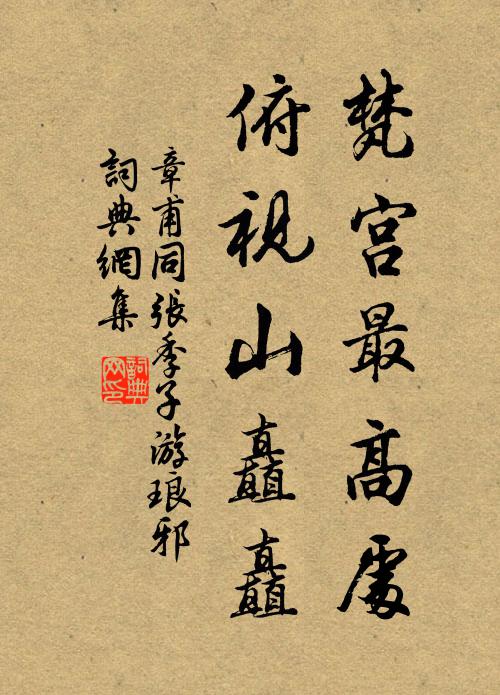 梵宫最高處
俯視山矗矗
章甫同張季子游琅邪
詞典網集
詞典網印